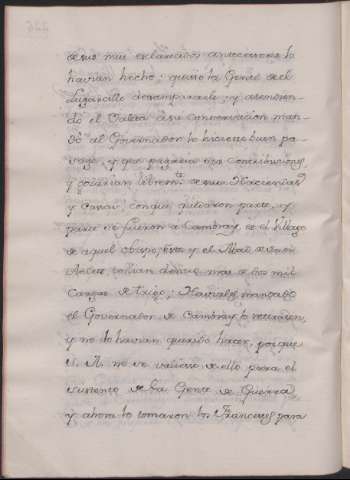 de sus mui exclarecidos antecesores lo
havian hecho; quiso la Gente del
Lugarcillo desampararle, y atendien-
do el Baten a su conservacion man-
dó al Governador lo hiciese buen pa-
sage, y que pagasen sus contribuciones
y gozarian librem.te de sus Haciendas
y Casas; con que, quedaron parte, y
parte se fueron a Cambray: es el Village
de aquel obispo, este y el Abad de San
Aubert tenian dentro mas de dos mil
Cargas de trigo; Haviales mandado
el Governador de Cambray lo retirasen,
y no lo havian querido hacer, porque
S. A. no se valiese de ello para el
sustento de la Gente de Guerra,
y ahora lo tomaron los Franceses para